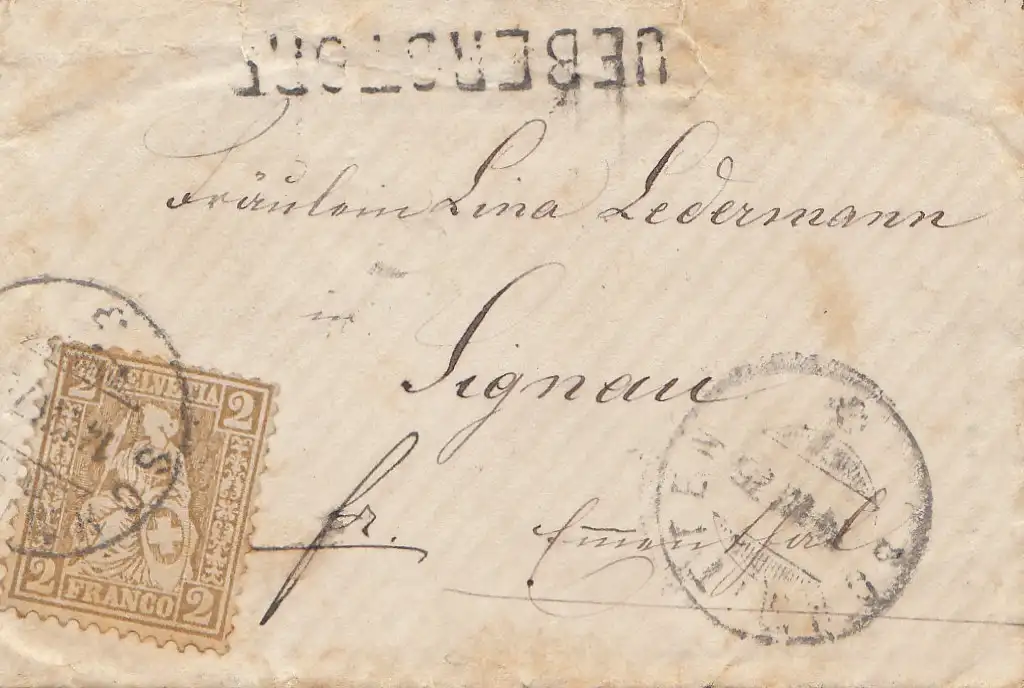 UEBERSTORF
Fräulein Lina Ledermann
in
Signau
fr. Emmenthal
HELVETIA
2 2
2 FRANCO 2